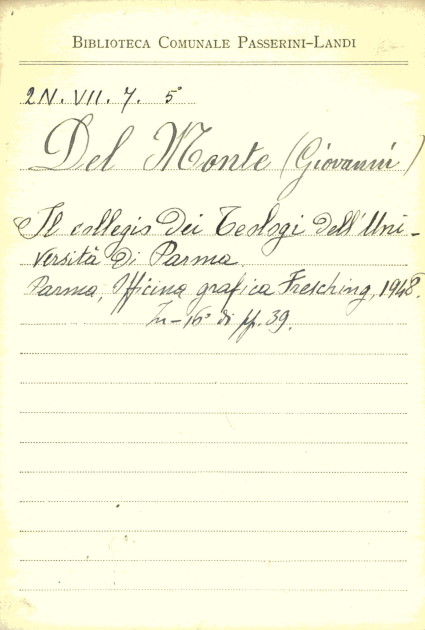 BIBLIOTECA COMUNALE PASSERINI-LANDI
2N. VII. 7. 5°
Del Monte (Giovanni)
Il collegio dei Teologi dell'Uni-
versità di Parma.
Parma, Officina grafica Fresching, 1948.
In-16° di pp. 39.